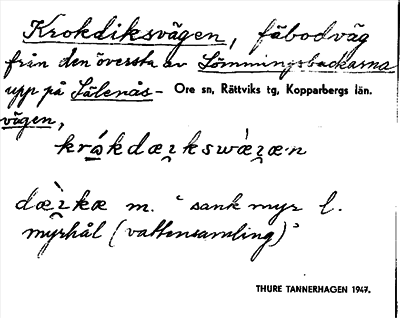 Krokdiksvägen, fäbodväg
från den översta av Lömmingsbackarna
upp på Sälenås- Ore sn, Rättviks tg, Kopparbergs län.
vägen,
krákdæʒkswæ̀ʒæn
dæ̀ʒkæ m. "sank myr l.
myrhål (vattensamling)"
THURE TANNERHAGEN 1947.